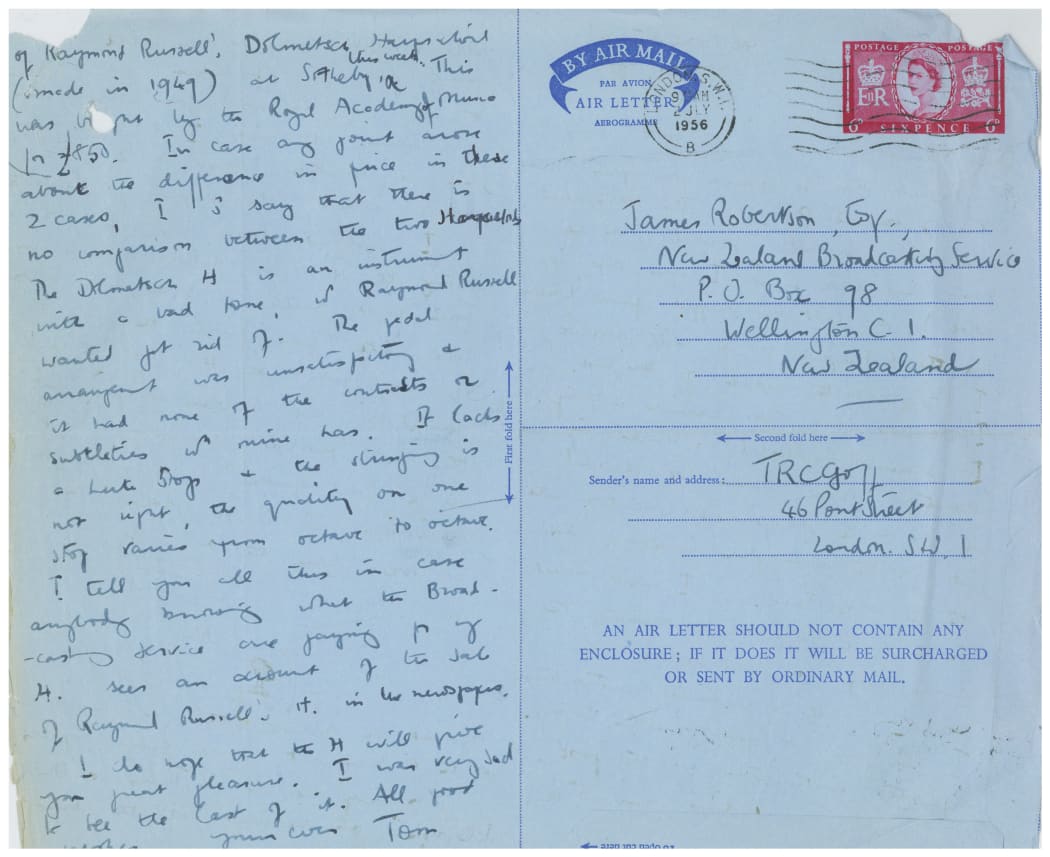 of Raymond Russell's Dolmetsch Harpsichord
(made in 1949) at Sotheby's this week. This
was bought by the Royal Academy of Music
for £850. In case any point arose
about the difference in price in these
2 cases, I say that there is
no comparison between the two Harpsichords
The Dolmetsch H is an instrument
with a bad tone, wh Raymond Russell
wanted get rid of. The pedal
arrangement was unsatisfactory &
it had none of the contrasts or
subtleties wh mine has. It lacks
a Lute Stop & the stringing is
not right, the quality on one
stop varies from octave to octave.
I tell you all this in case
anybody knowing what the Broad-
-casting Service are paying for my
H. sees an account of the sale
of Raymond Russell's H. in the newspapers.
I do hope that the H will give
you great pleasure. I was very sad
to see the last of it. All good
wishes yours ever Tom
First fold here
BY AIR MAIL
PAR AVION
AIR LETTER
AEROGRAMME
LONDON S.W.1.
2 JLY
1956
B
POSTAGE POSTAGE
E R
6D SIXPENCE 6D
James Robertson, Esq.,
New Zealand Broadcasting Service
P. O. Box 98
Wellington C. 1.
New Zealand
Second fold here
Sender's name and address: TRCGoff
46 Pont Street
London. SW. 1
AN AIR LETTER SHOULD NOT CONTAIN ANY
ENCLOSURE; IF IT DOES IT WILL BE SURCHARGED
OR SENT BY ORDINARY MAIL.
To open cut here